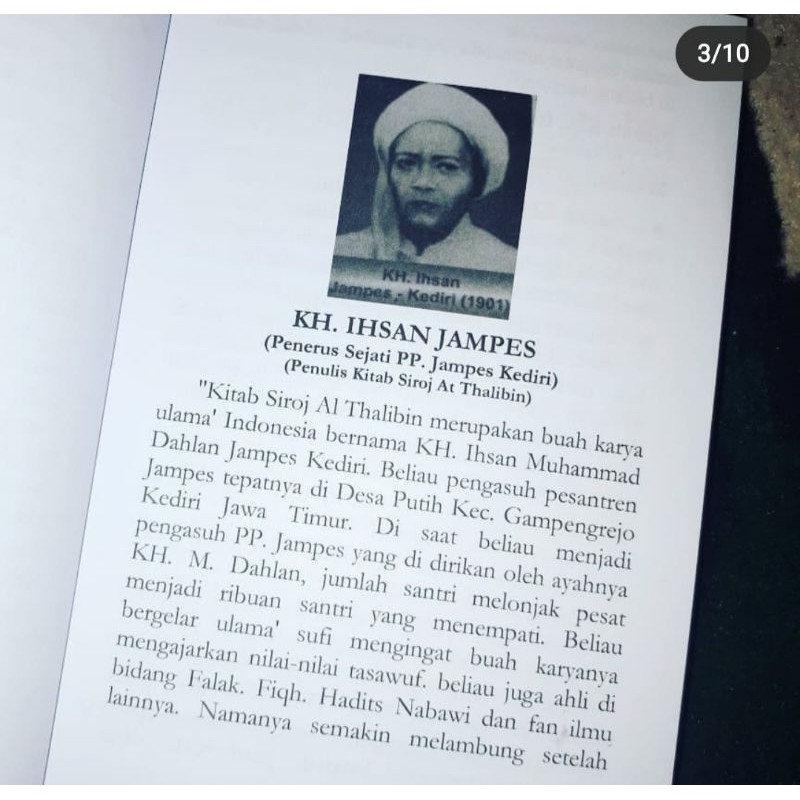 3/10
KH. Ihsan
Jampes - Kediri (1901)
KH. IHSAN JAMPES
(Penerus Sejati PP. Jampes Kediri)
(Penulis Kitab Siroj At Thalibin)
"Kitab Siroj Al Thalibin merupakan buah karya
ulama' Indonesia bernama KH. Ihsan Muhammad
Dahlan Jampes Kediri. Beliau pengasuh pesantren
Jampes tepatnya di Desa Putih Kec. Gampengrejo
Kediri Jawa Timur. Di saat beliau menjadi
pengasuh PP. Jampes yang di dirikan oleh ayahnya
KH. M. Dahlan, jumlah santri melonjak pesat
menjadi ribuan santri yang menempati. Beliau
bergelar ulama' sufi mengingat buah karyanya
mengajarkan nilai-nilai tasawuf. beliau juga ahli di
bidang Falak. Fiqh. Hadits Nabawi dan fan ilmu
lainnya. Namanya semakin melambung setelah